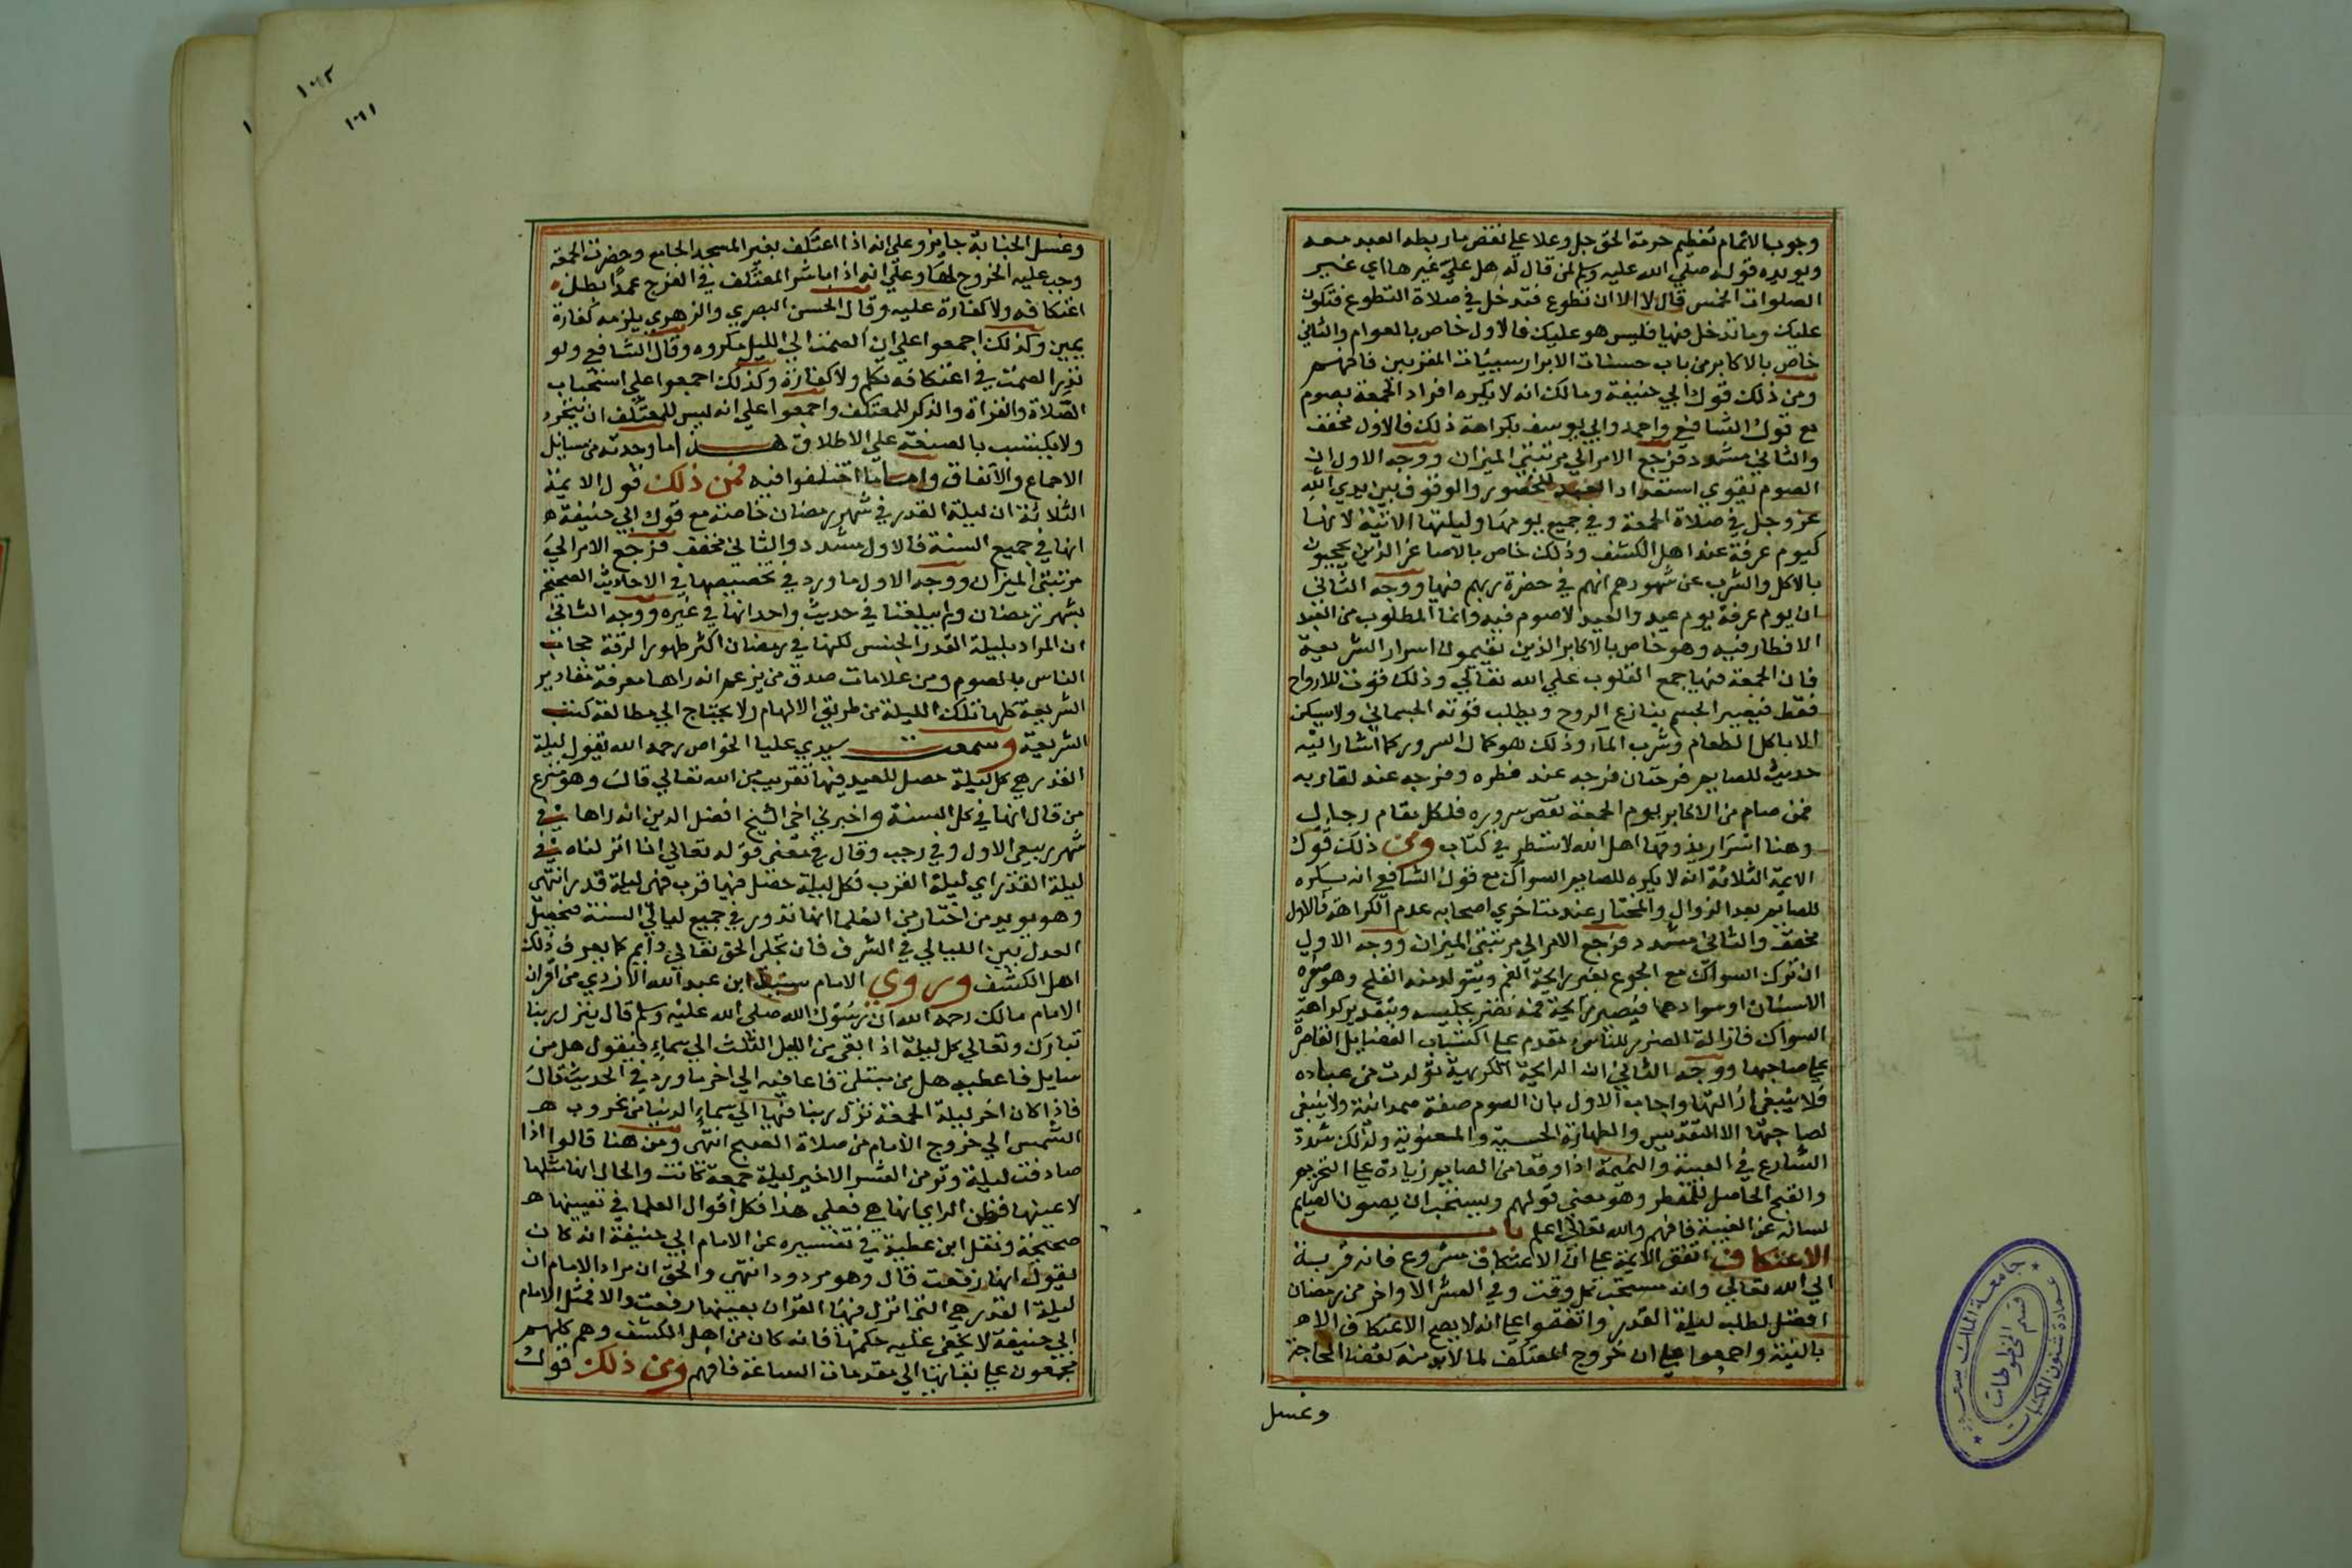 وجوب الاتمام تعظيم حرمة الحق جل وعلا علي نقض ما ربطه العبد معه
ويويده قوله صلي الله عليه وسلم لمن قال له هل علي غيرها اي غير
الصلوات الخمس قال لا الا ان تطوع فتدخل في صلاة التطوع فتكون
عليك وما تدخل فيها فليس هو عليك فالاول خاص بالعوام والثاني
خاص بالاكابر من باب حسنات الابرار سييات المقربين فافهم
ومن ذلك قول ابي حنيفة ومالك انه لا يكره افراد الجمعة بصوم
مع قول الشافعي واحمد وابي يوسف بكراهة ذلك فالاول مخفف
والثاني مشدد فرجع الامر الي مرتبتي الميزان ووجه الاول ان
الصوم يقوي استعداد العبد للحضور والوقوف بين يدي الله
عز وجل في صلاة الجمعة وفي جميع يومها وليلتها الاتية لانها
كيوم عرفة عند اهل الكشف وذلك خاص بالاصاغر الذين يحجبون
بالاكل والشرب عن شهودهم انهم في حضرة ربهم فيها ووجه الثاني
ان يوم عرفة يوم عيد والعيد لا صوم فيه وانما المطلوب من العبد
الافطار فيه وهو خاص بالاكابر الذين يفهمون اسرار الشريعة
فان الجمعة فيها جمع القلوب علي الله تعالي وذلك قوت للارواح
فقط فيصير الجسم ينازع الروح ويطلب قوته الجسماني ولا يسكن
الا باكل الطعام وشرب الماء وذلك هو كمال السرور كما اشار اليه
حديث للصايم فرحتان فرحه عند فطره وفرحه عند لقا ربه
فمن صام من الاكابر يوم الجمعة نقص سروره فلكل مقام رجال
وهنا اسرار يذوقها اهل الله لا تسطر في كتاب ومن ذلك قول
الايمة الثلاثة انه لا يكره للصايم السواك مع قول الشافعي انه يكره
للصايم بعد الزوال والمختار عند متاخري اصحابه عدم الكراهة فالاول
مخفف والثاني مشدد فرجع الامر الي مرتبتي الميزان ووجه الاول
ان ترك السواك مع الجوع يغير رايحة الفم ويتولد منه القلح وهو صفرة
الاسنان او سوادها فيصير رايحة فمه تضر بجليسه وبتقدير كراهة
السواك فازالة الضرر للناس مقدم علي اكتساب الفضايل القاصرة
علي صاحبها ووجه الثاني ان الرايحة الكريهة تولدت من عبادة
فلا ينبغي ازالتها واجاب الاول بان الصوم صفة صمدانية ولا ينبغي
لصاحبها الا التقديس والطهارة الحسية والمعنوية ولذلك شدد
الشارع في الغيبة والنميمة اذا وقعا من الصايم زيادة علي التحريم
والقبح الحاصل للمفطر وهو معني قولهم ويستحب ان يصون الصايم
لسانه عن الغيبة فافهم والله تعالي اعلم باب
الاعتكاف اتفق الايمة علي ان الاعتكاف مشروع فانه قربة
الي الله تعالي وانه مستحب كل وقت وفي العشر الاواخر من رمضان
افضل لطلب ليلة القدر واتفقوا علي انه لا يصح الاعتكاف الا
بالنية واجمعوا علي ان خروج المعتكف لما لابد منه كقضا الحاجة
وغسل
١٠٦٢
١٠٦١
وغسل الجنابة جايز وعلي انه اذا اعتكف بغير المسجد الجامع وحضرت الجمعة
وجب عليه الخروج لها وعلي انه اذا باشر المعتكف في الفرج عمدا بطل
اعتكافه ولا كفارة عليه وقال الحسن البصري والزهري يلزمه كفارة
يمين وكذلك اجمعوا علي ان الصمت الي الليل مكروه وقال الشافعي ولو
نذر الصمت في اعتكافه تكلم ولا كفارة وكذلك اجمعوا علي استحباب
الصلاة والقراة والذكر للمعتكف واجمعوا علي انه ليس للمعتكف ان يتجر
ولا يكتسب بالصنعة علي الاطلاق هذا ما وجدته من مسايل
الاجماع والاتفاق واما ما اختلفوا فيه فمن ذلك قول الايمة
الثلاثة ان ليلة القدر في شهر رمضان خاصة مع قول ابي حنيفة
انها في جميع السنة فالاول مشدد والثاني مخفف فرجع الامر الي
مرتبتي الميزان ووجه الاول ما ورد في تخصيصها في الاحاديث الصحيحة
بشهر رمضان ولم يبلغنا في حديث واحد انها في غيره ووجه الثاني
ان المراد بليلة القدر الجنس لكنها في رمضان اكثر ظهورا لرقة حجاب
الناس بالصوم ومن علامات صدق من يزعم انه راها معرفة مقادير
الشريعة كلها تلك الليلة من طريق الالهام ولا يحتاج الي مطالعة كتب
الشريعة وسمعت سيدي عليا الخواص رحمه الله يقول ليلة
القدر هي كل ليلة حصل للعبد فيها تقريب من الله تعالي قال وهو منزع
من قال انها في كل السنة واخبرني اخي الشيخ افضل الدين انه راها في
شهر ربيع الاول وفي رجب وقال في معني قوله تعالي انا انزلناه في
ليلة القدر اي ليلة القرب فكل ليلة حصل فيها قرب فهي ليلة قدر انتهي
وهو يويد من اختار من العلما انها تدور في جميع ليالي السنة فيحصل
العدل بين الليالي في الشرف فان تجلي الحق تعالي دايم كما يعرف ذلك
اهل الكشف وروي الامام سنيد ابن عبد الله الازدي من اقران
الامام مالك رحمه الله ان رسول الله صلي الله عليه وسلم قال ينزل ربنا
تبارك وتعالي كل ليلة اذا بقي من الليل الثلث الي سماء فيقول هل من
سايل فاعطيه هل من مبتلي فاعافيه الي اخر ما ورد في الحديث قال
فاذا كان اخر ليلة الجمعة نزل ربنا فيها الي سماء الدنيا من غروب
الشمس الي خروج الامام من صلاة الصبح انتهي ومن هنا قالوا اذا
صادفت ليلة وتر من العشر الاخير ليلة جمعة كانت والحال انها مثلها
لا عينها فظن الراي انها هي فعلي هذا فكل اقوال العلما في تعيينها
صحيحة ونقل ابن عطية في تفسيره عن الامام ابي حنيفة انه كان
يقول انها رفعت قال وهو مردود انتهي والحق ان مراد الامام ان
ليلة القدر هي التي انزل فيها القران بعينها رفعت والا فمثل الامام
ابي حنيفة لا يخفي عليه حكمها فانه كان من اهل الكشف وهم كلهم
مجمعون علي بقايها الي مقدمات الساعة فافهم ومن ذلك قول
جامعة الملك سعود
عمادة شئون المكتبات
قسم المخطوطات